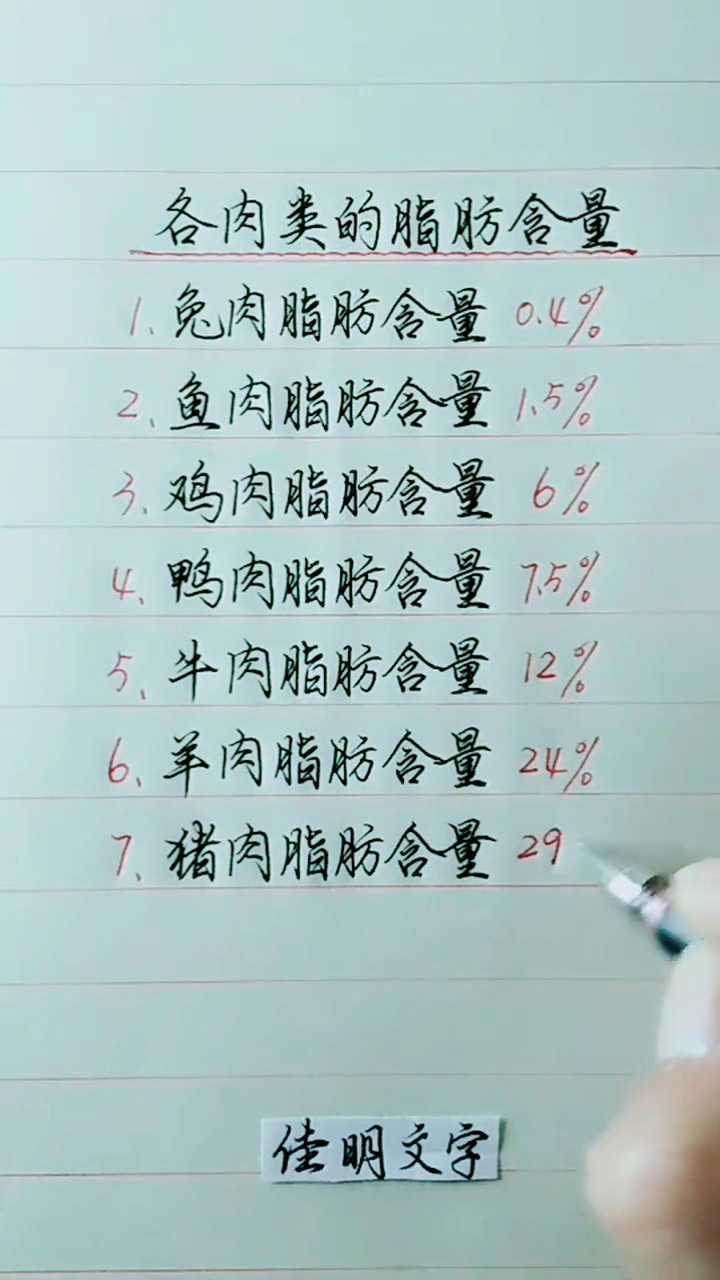 各肉类的脂肪含量
1、兔肉脂肪含量 0.4%
2、鱼肉脂肪含量 1.5%
3、鸡肉脂肪含量 6%
4、鸭肉脂肪含量 7.5%
5、牛肉脂肪含量 12%
6、羊肉脂肪含量 24%
7、猪肉脂肪含量 29
佳明文字